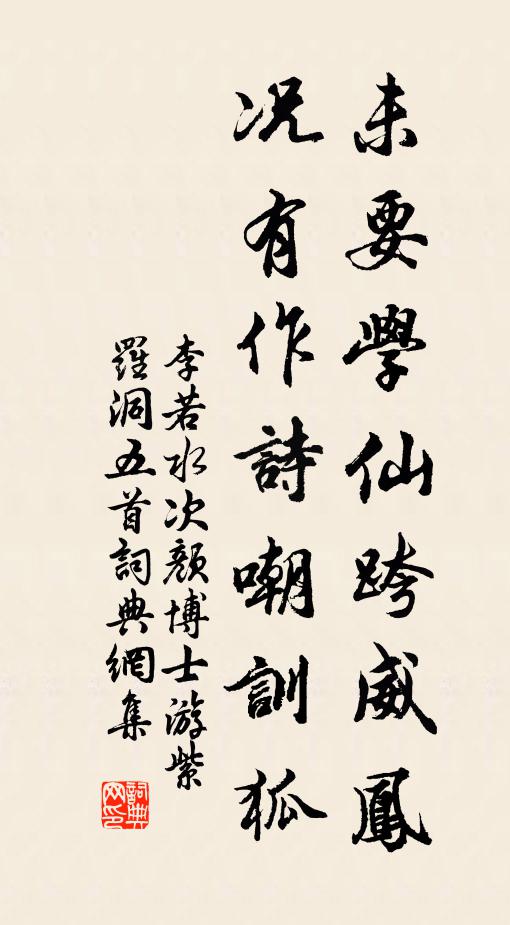 未要學仙跨威鳳
況有作詩嘲訓狐
李若水次顏博士游紫
羅洞五首詞典網集
詞典
网印